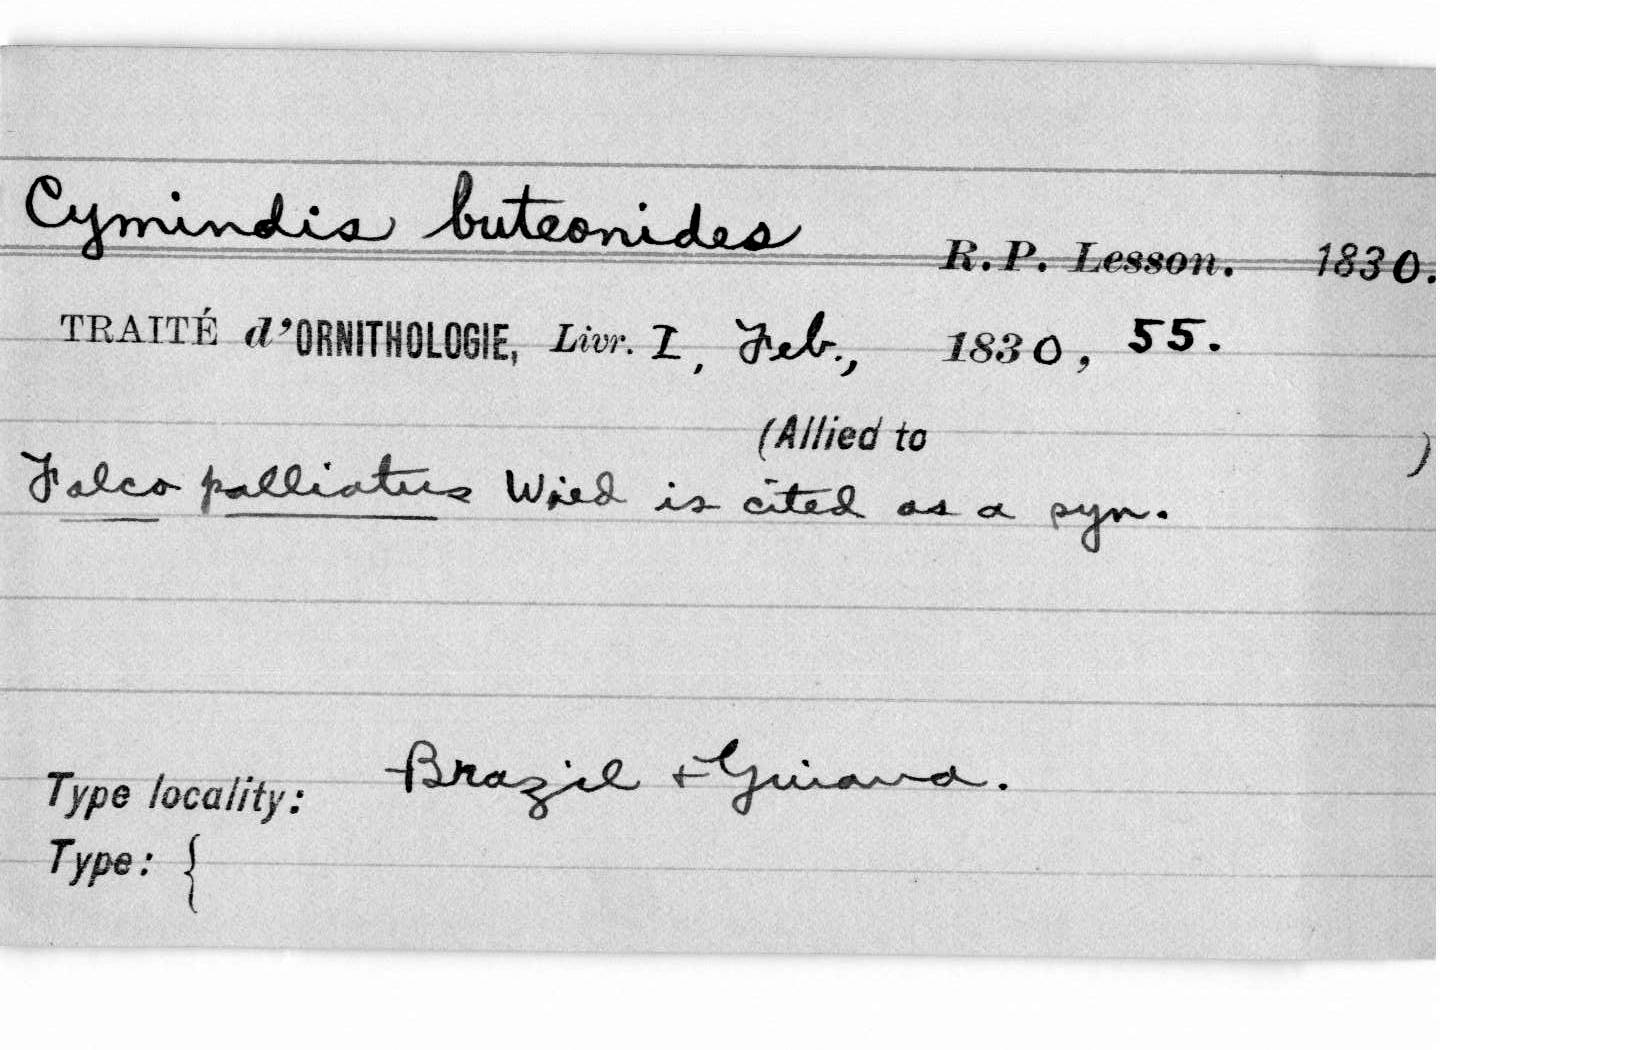 Cymindis buteonides R.P. Lesson. 1830.
TRAITÉ d'ORNITHOLOGIE, Livr. I, Feb., 1830, 55.
(Allied to )
Falco palliatus Wied is cited as a syn.
Type locality: Brazil + Guiana.
Type: {